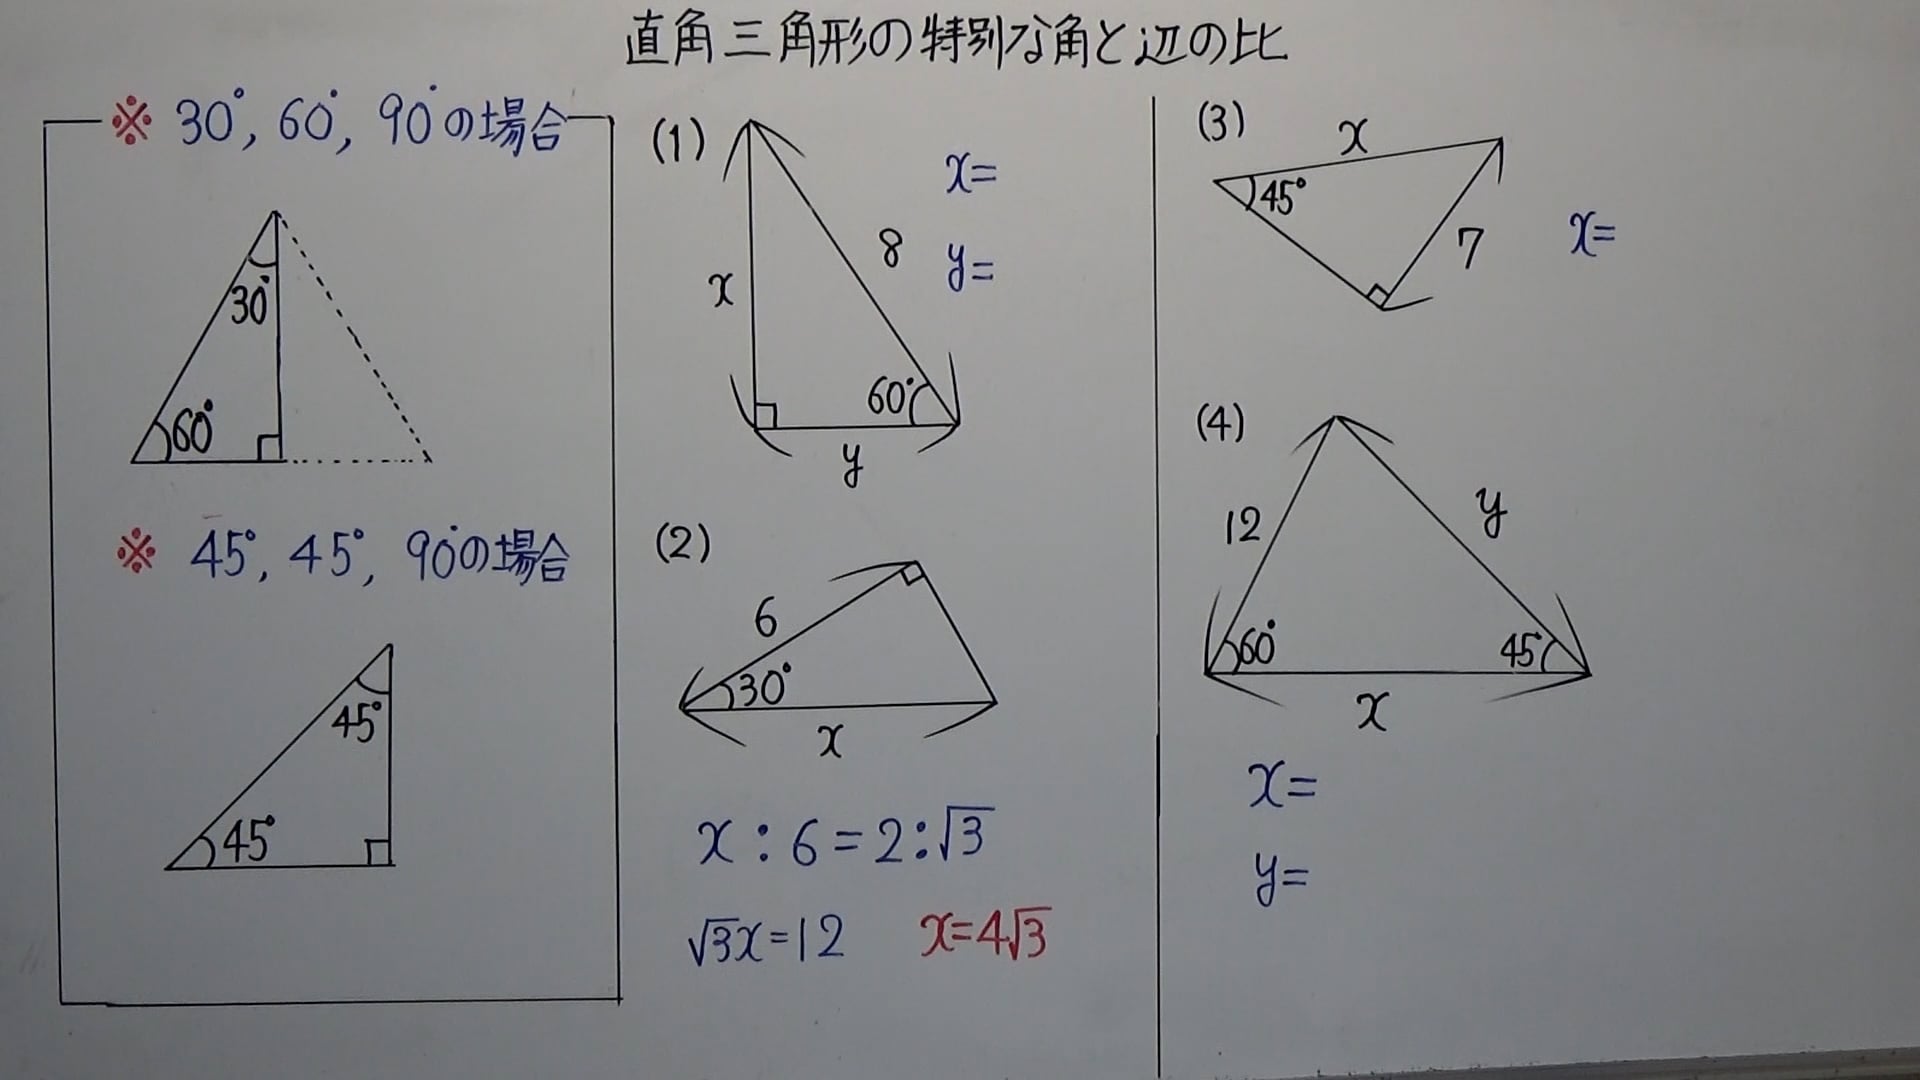 直角三角形の特別な角と辺の比
※ 30°, 60°, 90°の場合
30°
60°
※ 45°, 45°, 90°の場合
45°
45°
(1)
x
8
60°
y
x=
y=
(2)
6
30°
x
x : 6 = 2 : √3
√3x=12 x=4√3
(3)
x
45°
7
x=
(4)
12
y
60°
45°
x
x=
y=